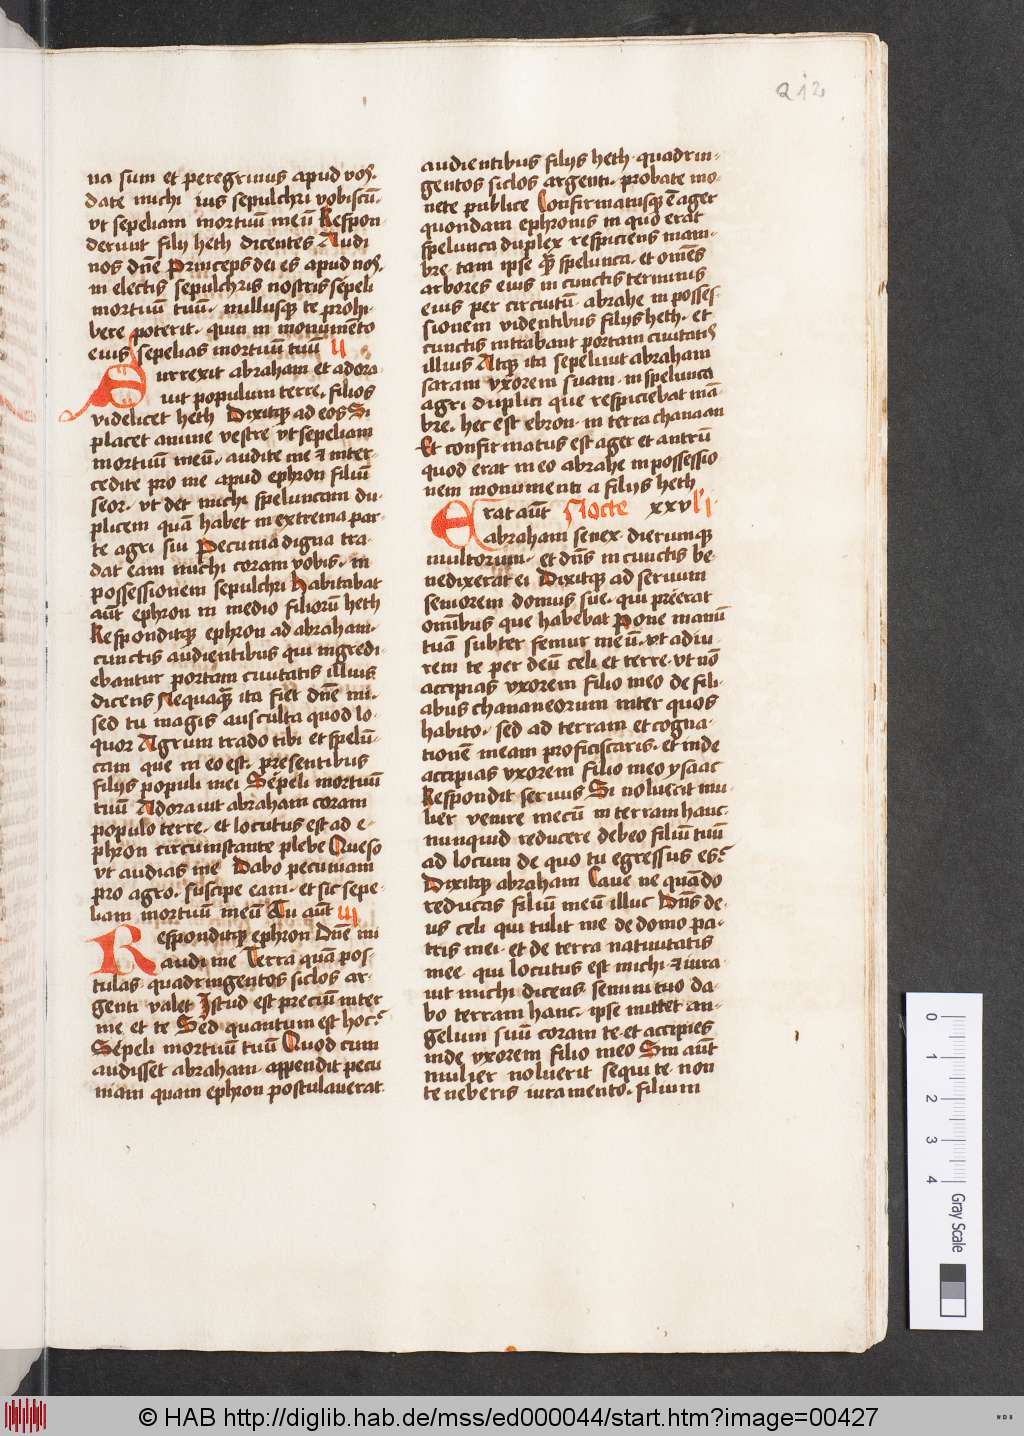 212
na sum et peregrinus apud voſ.
date michi ius sepulchri vobiscū.
vt sepeliam mortuū meū Respon-
derunt filij heth dicentes Audi
nos dn̄e Princeps dei es apud noſ.
in electis sepulchris nostris sepeli
mortuū tuū. nullusqꝫ te prohi-
bere poterit. quin in monumēto
eius sepelias mortuū tuū ij
Surrexit abraham et adora-
uit populum terre. filios
videlicet heth Dixitqꝫ ad eos Si
placet anime vestre vt sepeliam
mortuū meū. audite me ⁊ inter-
cedite pro me apud ephron filiū
seor. vt det michi speluncam du-
plicem quā habet in extrema par-
te agri sui Pecunia digna tra-
dat eam michi coram vobis. in
possessionem sepulchri Habitabat
aūt ephron in medio filiorū heth
Responditqꝫ ephron ad abraham.
cunctis audientibus qui ingredi-
ebantur portam ciuitatis illius
dicens Nequaqꝫ ita fiet dn̄e mi.
sed tu magis ausculta quod lo-
quor Agrum trado tibi et spelū-
cam que in eo est. presentibus
filijs populi mei Sepeli mortuū
tuū Adorauit abraham coram
populo terre. et locutus est ad e-
phron circumstante plebe Queso
vt audias me Dabo pecuniam
pro agro. suscipe eam. et sic sepe-
liam mortuū meū Tu aūt iij
Responditqꝫ ephron Dn̄e mi
audi me Terra quā pos-
tulas quadringentos siclos ar-
genti valet Istud est preciū inter
me et te Sed quantum est hoc?
Sepeli mortuū tuū Quod cum
audisset abraham. appendit pecu
niam quam ephron postulauerat
audientibus filijs heth. quadrin-
gentos siclos argenti. probate mo-
nete publice Confirmatusqꝫ ē ager
quondam ephronis in quo erat
spelunca duplex respiciens mam-
bre. tam ipse qꝫ spelunca. et om̄es
arbores eius in cunctis terminis
eius per circuitū. abrahe in posses-
sionem videntibus filijs heth. et
cunctis intrabant portam ciuitatiſ
illius Atqꝫ ita sepeliuit abraham
saram vxorem suam. in spelunca
agri duplici que respiciebat mā-
bre. hec est ebron. in terra chanaan
Et confirmatus est ager et antrū
quod erat in eo abrahe in possessio
nem monumenti a filijs heth
Erat aūt Nocte xxvi j
abraham senex. dierumqꝫ
multorum. et dn̄s in cunctis be-
nedixerat ei Dixitqꝫ ad seruum
seniorem domus sue. qui preerat
om̄ibus que habebat Pone manū
tuā subter femur meū. vt adiu-
rem te per deū celi et terre. vt nō
accipias vxorem filio meo de fili-
abus chananeorum inter quos
habito. sed ad terram et cogna-
tionē meam proficiscaris. et inde
accipias vxorem filio meo ysaac
Respondit seruus Si noluerit mu-
lier venire mecū in terram hanc.
nunquid reducere debeo filiū tuū
ad locum de quo tu egressus es?
Dixitqꝫ abraham Caue ne quādo
reducas filiū meū illuc Dn̄s de-
us celi qui tulit me de domo pa-
tris mei. et de terra natiuitatis
mee. qui locutus est michi. ⁊ iura-
uit michi dicens. semini tuo da-
bo terram hanc. ipse mittet an-
gelum suū coram te. et accipies
inde vxorem filio meo Sin aūt
mulier noluerit sequi te. non
teneberis iuramento. filium
0 1 2 3 4 Gray Scale
© HAB http://diglib.hab.de/mss/ed000044/start.htm?image=00427